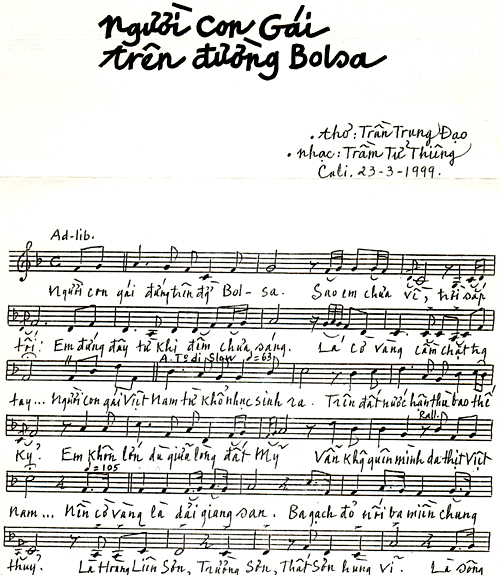 Người Con Gái
trên đường Bolsa
. thơ: Trần Trung Đạo
. nhạc: Trầm Tử Thiêng
Cali, 23-3-1999.
Ad-lib.
Người con gái đứng trên đg̀ Bol-sa. Sao em chưa về, trời sắp
tối! Em đứng đây từ khi đêm chưa sáng. Lá cờ vàng cầm chặt trg
A. Tsdi Slow ♩=63
tay... Người con gái Việt Nam từ khổ nhục sinh ra. Trên đất nước hận thù bao thế
Rall.
Kỷ. Em khôn lớn dù giữa lòng đất Mỹ Vẫn khg quên mình da thịt Việt
♩=105
nam... Nền cờ vàng là dải giang san. Ba gạch đỏ nối ba miền chung
thủy. Là Hoàng Liên Sơn, Trường Sơn, Thất Sơn hùng vĩ. Là sông